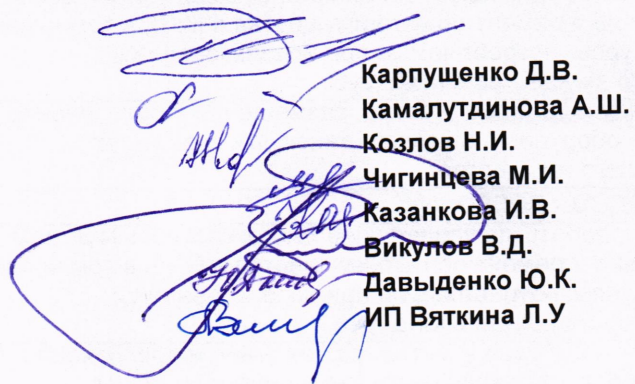 Карпущенко Д.В.
Камалутдинова А.Ш.
Козлов Н.И.
Чигинцева М.И.
Казанкова И.В.
Викулов В.Д.
Давыденко Ю.К.
ИП Вяткина Л.У